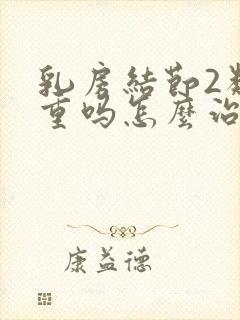 乳房結節2类
重吗怎麼治
康益德